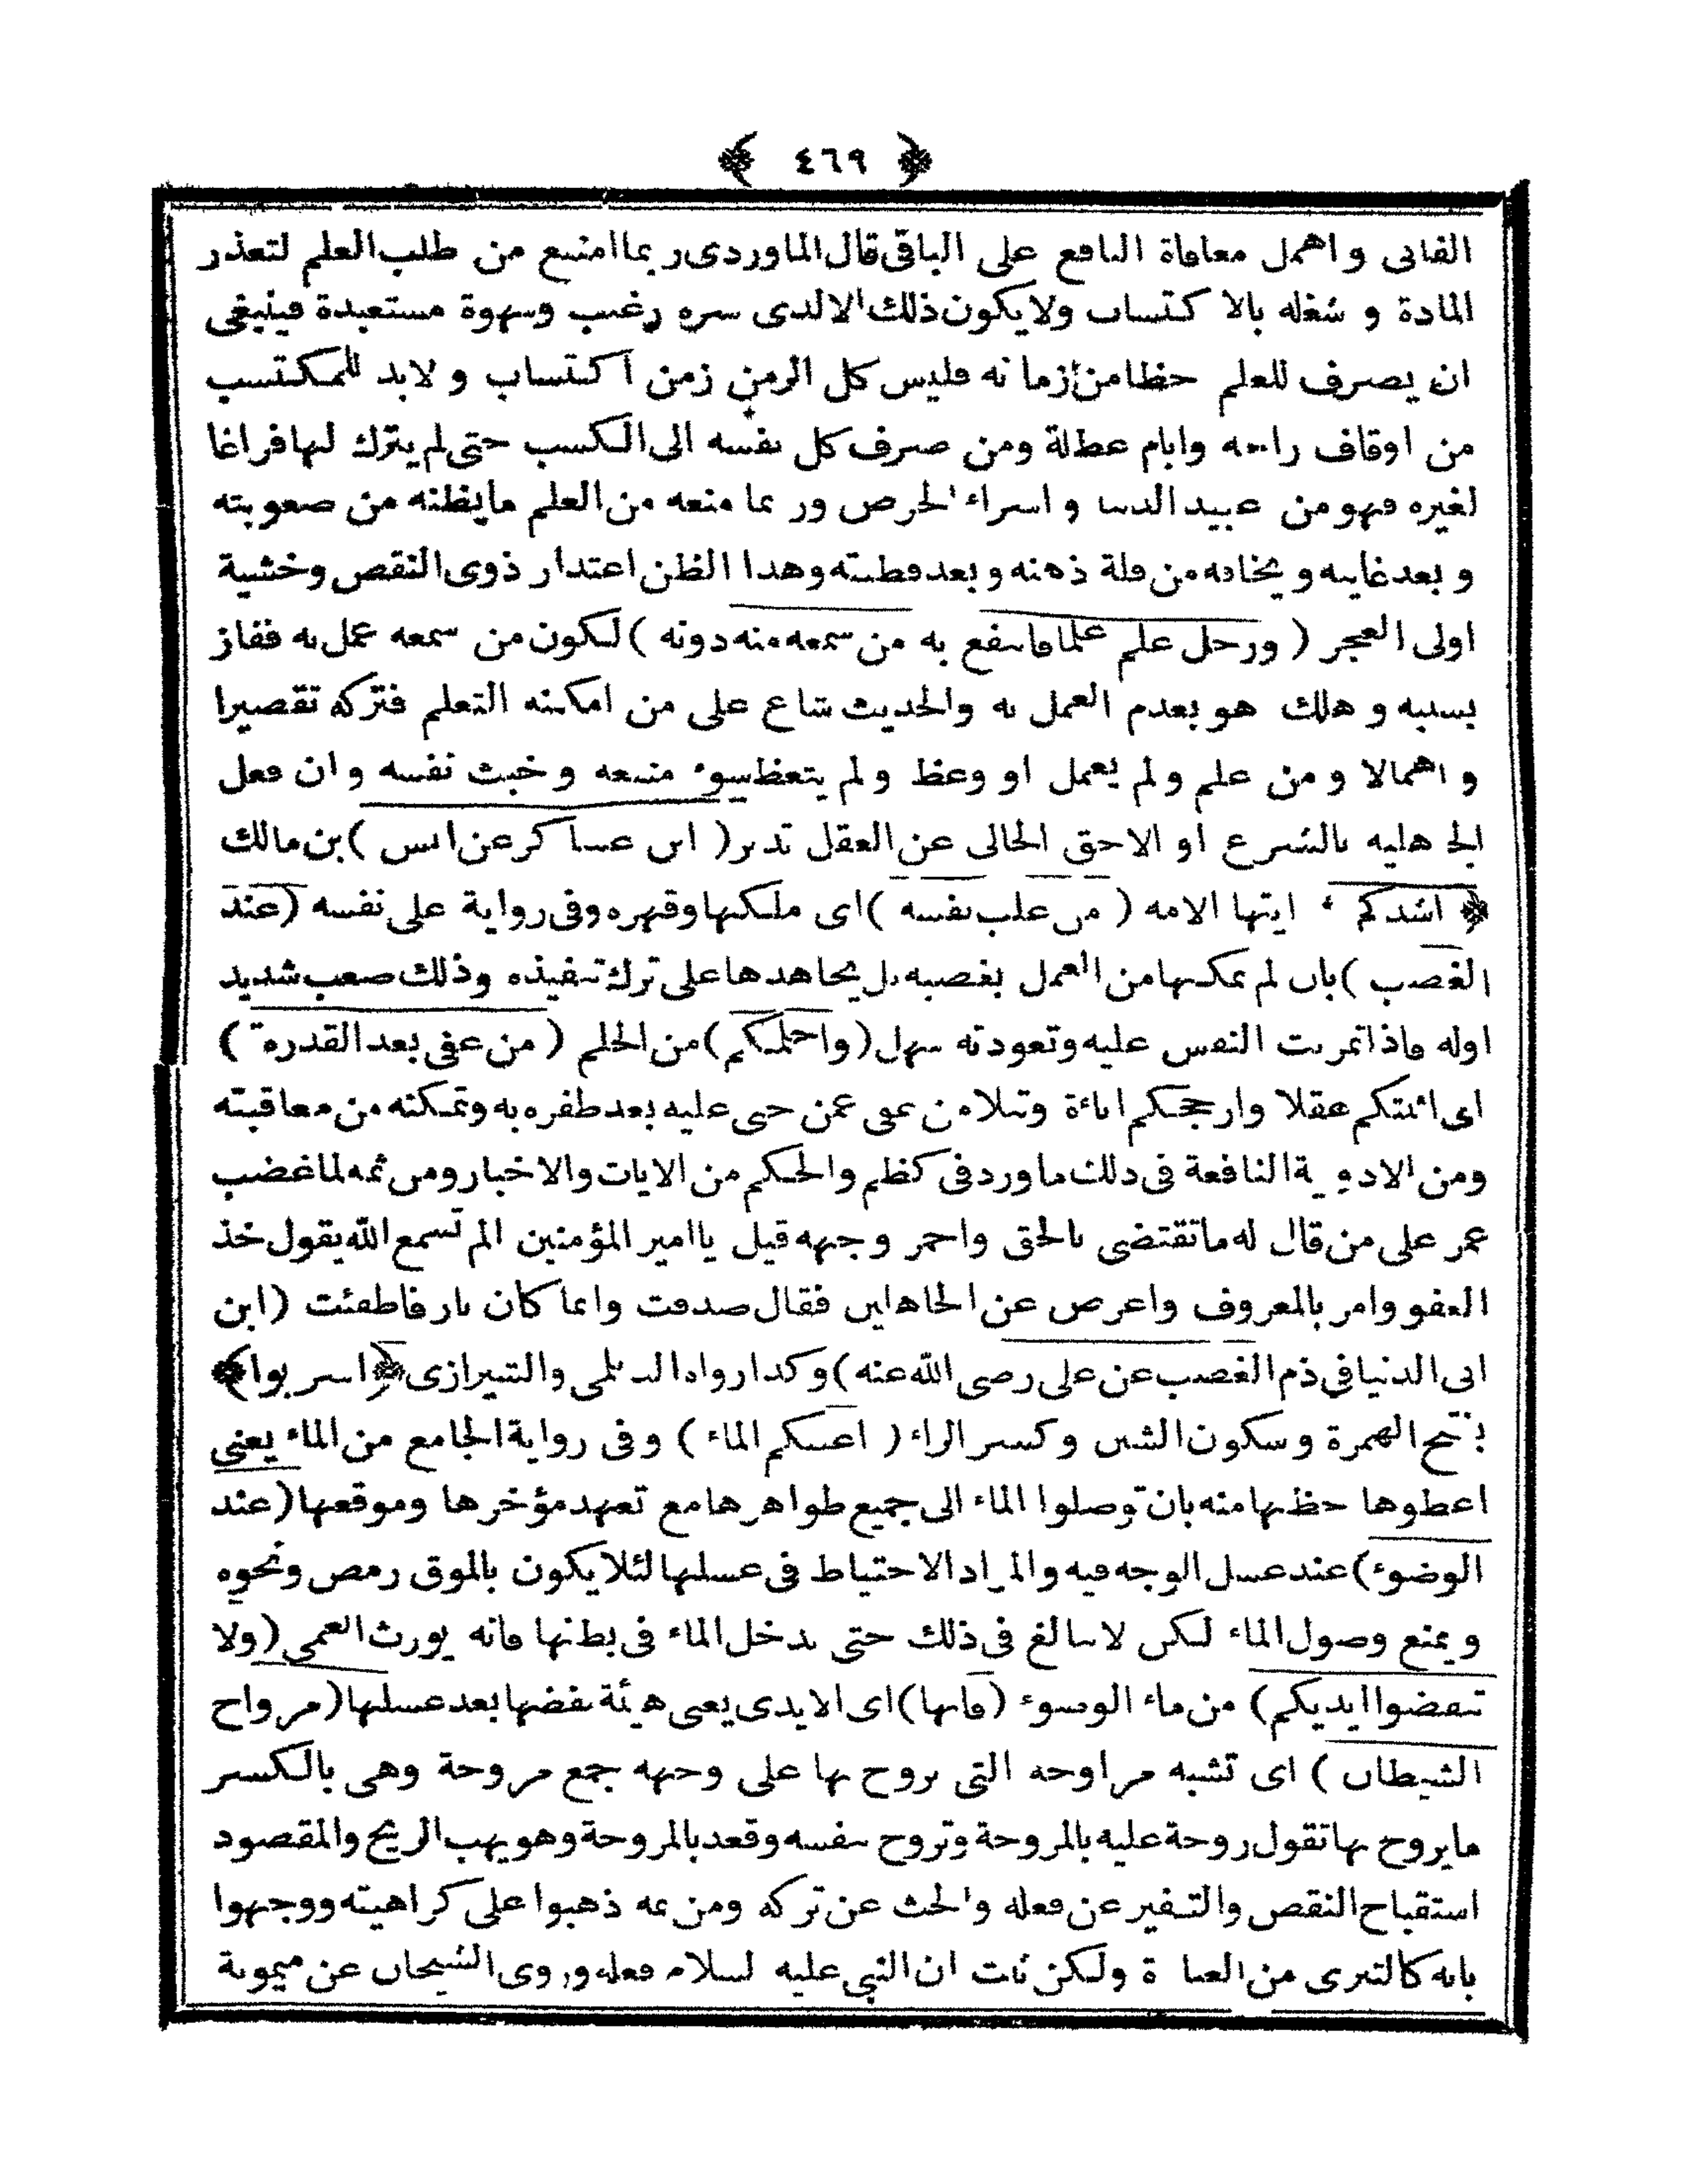 ﴿ ٤٦٩ ﴾
الفانى و اهمل معاناة النافع على الباقى قال الماوردى ربما امتنع من طلب العلم لتعذر
المادة و شغله بالا كتساب ولا يكون ذلك الا لدى شره رغيب وشهوة مستعبدة فينبغى
ان يصرف للعلم حظا من ازما نه فليس كل الزمن زمن اكتساب و لابد للمكتسب
من اوقاف راحه وايام عطلة ومن صرف كل نفسه الى الكسب حتى لم يترك لها فراغا
لغيره فهو من عبيد الدنيا و اسراء الحرص ور بما منعه من العلم مايظنه من صعوبته
و بعد غايته و يخافه من قلة ذهنه و بعد فطنته وهذا الظن اعتذار ذوى النقص وخشية
اولى العجز ( ورجل علم علما فانتفع به من سمعه منه دونه ) لكون من سمعه عمل به ففاز
بسببه و هلك هو بعدم العمل به والحديث شاع على من امكنه التعلم فتركه تقصيرا
و اهمالا و من علم و لم يعمل او وعظ و لم يتعظ سوء منعه و خبث نفسه وان فعل
الجاهليه بالشرع او الاحمق الخالى عن العقل تدبر ( ابن عساكر عن انس ) بن مالك
﴿ اشدكم ﴾ ايتها الامه ( من غلب نفسه ) اى ملكها وقهره وفى رواية على نفسه (عند
الغضب ) بان لم يمكنها من العمل بغضبه بل يجاهدها على ترك تنفيذه وذلك صعب شديد
اوله فاذا تمرنت النفس عليه وتعودته سهل (واحلمكم) من الحلم ( من عفى بعد القدرة )
اى اثبتكم عقلا وارجحكم اناءة ونبلا من عفى عمن جنى عليه بعد ظفره به وتمكنه من معاقبته
ومن الادوية النافعة فى ذلك ماورد فى كظم والحكم من الايات والاخبار ومن ثمه لما غضب
عمر على من قال له ما تقتضى بالحق واحمر وجهه قيل يا امير المؤمنين الم تسمع الله يقول خذ
العفو وامر بالمعروف واعرض عن الجاهلين فقال صدقت وانما كان نار فاطفئت (ابن
ابى الدنيا فى ذم الغضب عن على رضى الله عنه) وكذا رواه الديلمى والشيرازى ﴿اشربوا﴾
بفتح الهمزة وسكون الشين وكسر الراء ( اعينكم الماء ) وفى رواية الجامع من الماء يعنى
اعطوها حظها منه بان توصلوا الماء الى جميع ظواهرها مع تعهد مؤخرها وموقعها (عند
الوضوء) عند غسل الوجه فيه والمراد الاحتياط فى غسلها لئلا يكون بالموق رمص ونحوه
و يمنع وصول الماء لكن لا يبالغ فى ذلك حتى يدخل الماء فى بطنها فانه يورث العمى (ولا
تنفضوا ايديكم) من ماء الوضوء (فانها) اى الايدى يعنى هيئة نفضها بعد غسلها (مراوح
الشيطان ) اى تشبه مراوحه التى يروح بها على وجهه جمع مروحة وهى بالكسر
مايروح بها تقول روحة عليه بالمروحة وتروح بنفسه وقعد بالمروحة وهو يهب الريح والمقصود
استقباح النقص والتنفير عن فعله والحث عن تركه ومن ثمه ذهبوا على كراهيته ووجهوا
بانه كالتبرى من العبا ة ولكن ثبت ان النبى عليه السلام فعله وروى الشيخان عن ميمونة